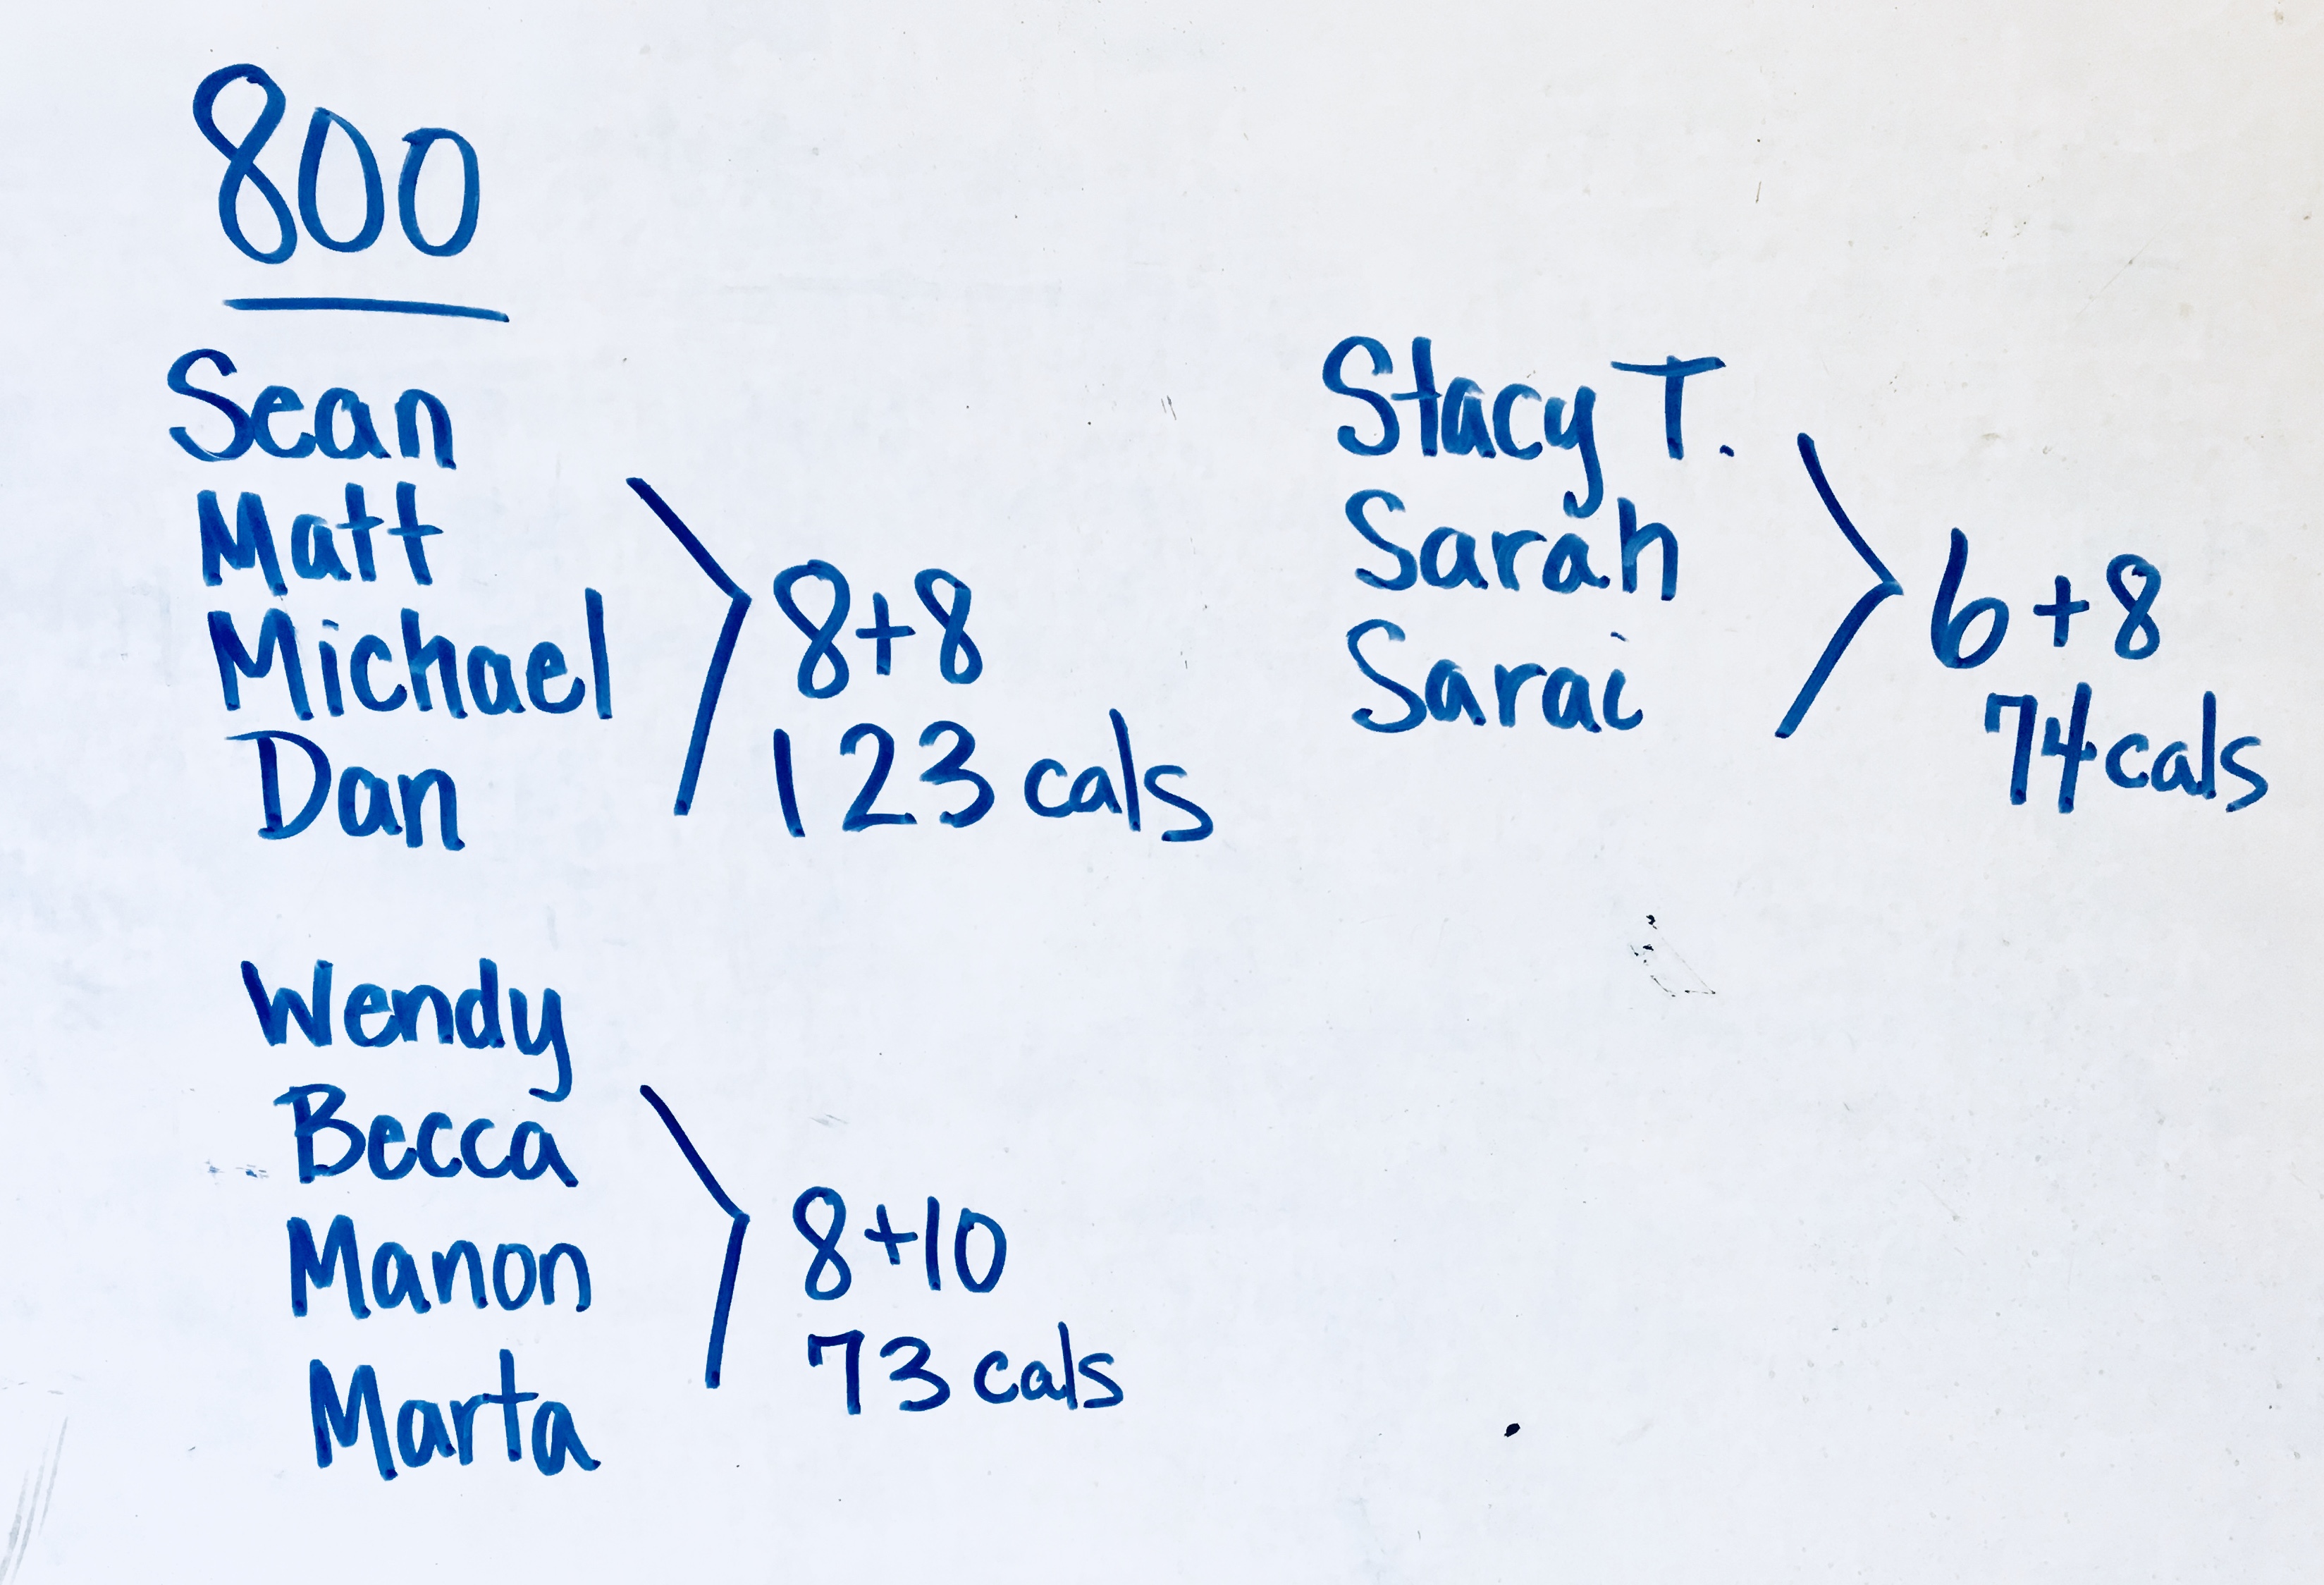 800
Sean
Matt
Michael
Dan
8+8
123 cals
Wendy
Becca
Manon
Marta
8+10
73 cals
Stacy T.
Sarah
Sarai
6+8
74 cals